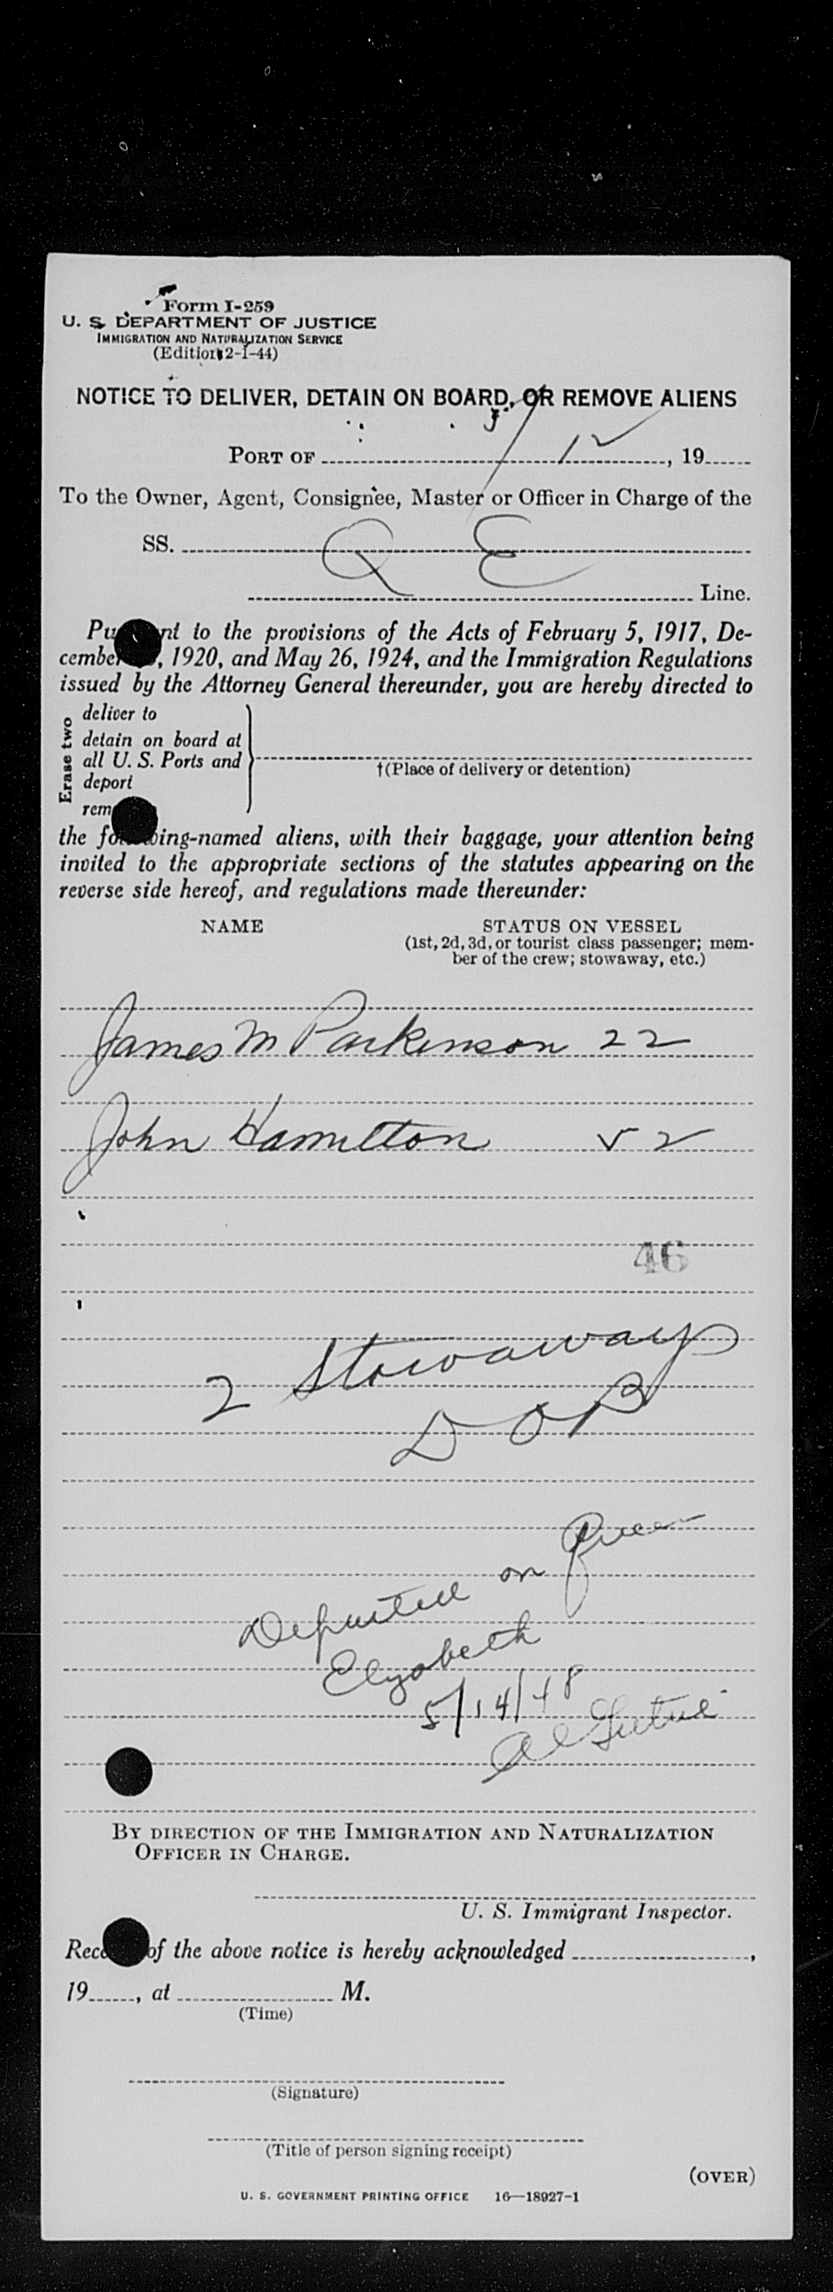 Form I-259
U. S. DEPARTMENT OF JUSTICE
IMMIGRATION AND NATURALIZATION SERVICE
(Edition 2-1-44)
NOTICE TO DELIVER, DETAIN ON BOARD, OR REMOVE ALIENS
PORT OF 5/12, 19
To the Owner, Agent, Consignee, Master or Officer in Charge of the
SS. Q E
Line.
Pu nt to the provisions of the Acts of February 5, 1917, De-
cember , 1920, and May 26, 1924, and the Immigration Regulations
issued by the Attorney General thereunder, you are hereby directed to
Erase two
deliver to
detain on board at
all U. S. Ports and
deport
rem
†(Place of delivery or detention)
the following-named aliens, with their baggage, your attention being
invited to the appropriate sections of the statutes appearing on the
reverse side hereof, and regulations made thereunder:
NAME STATUS ON VESSEL
(1st, 2d, 3d, or tourist class passenger; mem-
ber of the crew; stowaway, etc.)
James M Parkinson 22
John Hamilton 52
46
2 Stowaways
DOB
Departed on Queen
Elyabeth
5/14/48
By direction of the Immigration and Naturalization
Officer in Charge.
U. S. Immigrant Inspector.
Rec of the above notice is hereby acknowledged ,
19 , at M.
(Time)
(Signature)
(Title of person signing receipt)
(OVER)
U. S. GOVERNMENT PRINTING OFFICE 16—18927-1